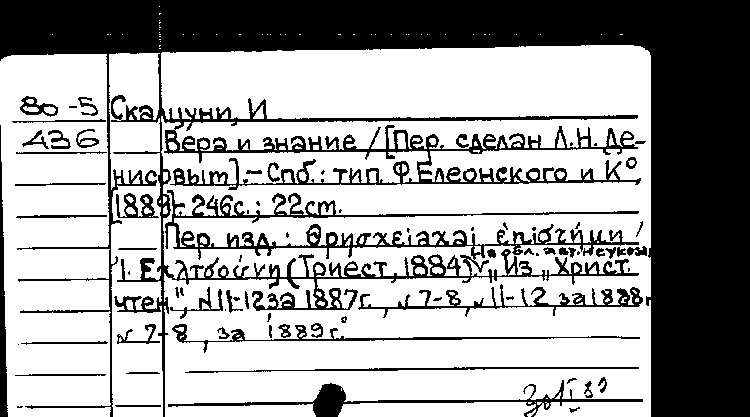 80-5 Скалцуни, И
436 Вера и знание / [Пер. сделан Л.Н. Де-
нисовым]. - Спб.: тип. Ф. Елеонского и К°,
[1889]. 246с.; 22cm.
Пер. изд.: Θρησχείαχαί ἐπίστήμη /
(Триест, 1884). На обл. авт. не указан
"Из "Христ.
чтен.", №11-12 за 1887г., № 7-8, № 11-12, за 1888г
№ 7-8, за 1889г.